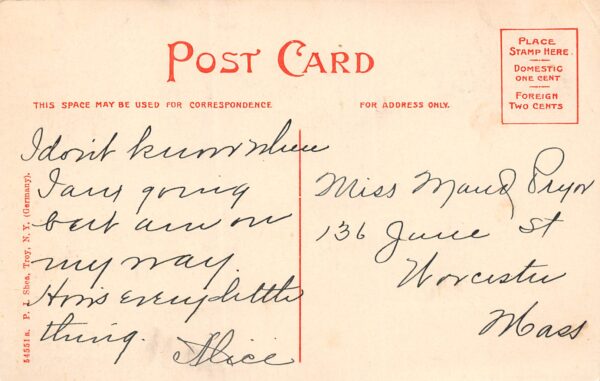 POST CARD
PLACE
STAMP HERE.
DOMESTIC
ONE CENT
FOREIGN
TWO CENTS
THIS SPACE MAY BE USED FOR CORRESPONDENCE.
FOR ADDRESS ONLY.
I don't know where
I am going
but am on
my way.
Hows every little
thing.
Alice
Miss Maud Pryor
136 June St
Worcester
Mass
54551a. P. J. Shea, Troy, N. Y. (Germany).